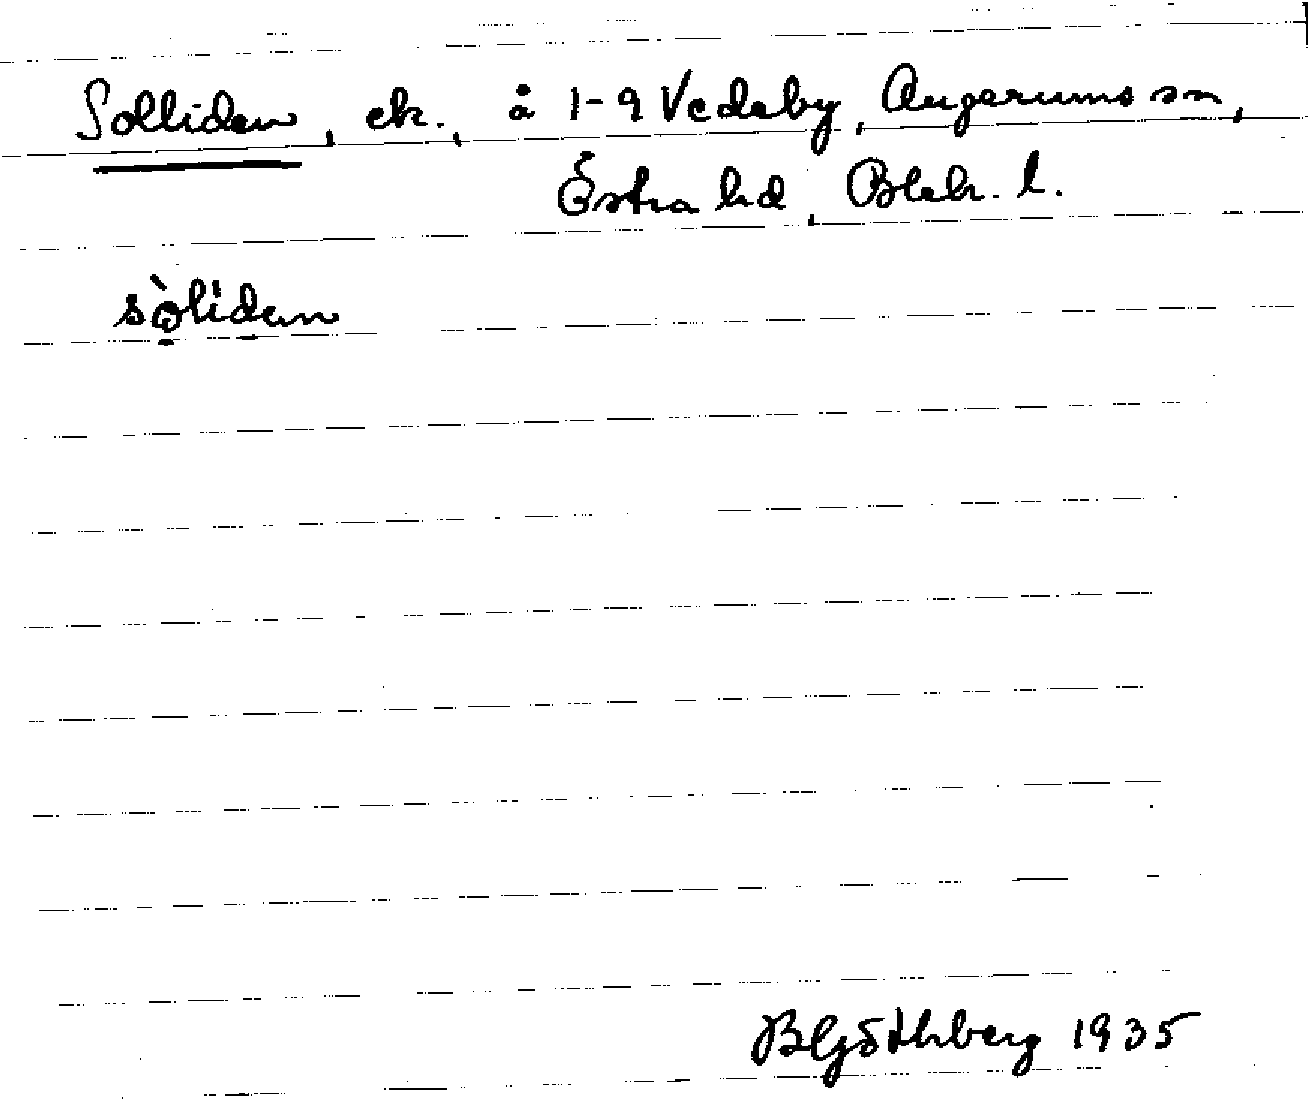 Solliden, ek., å 1-9 Vedeby, Augerums sn,
Östra hd, Blek. l.
sò̤lidən
BGöthberg 1935